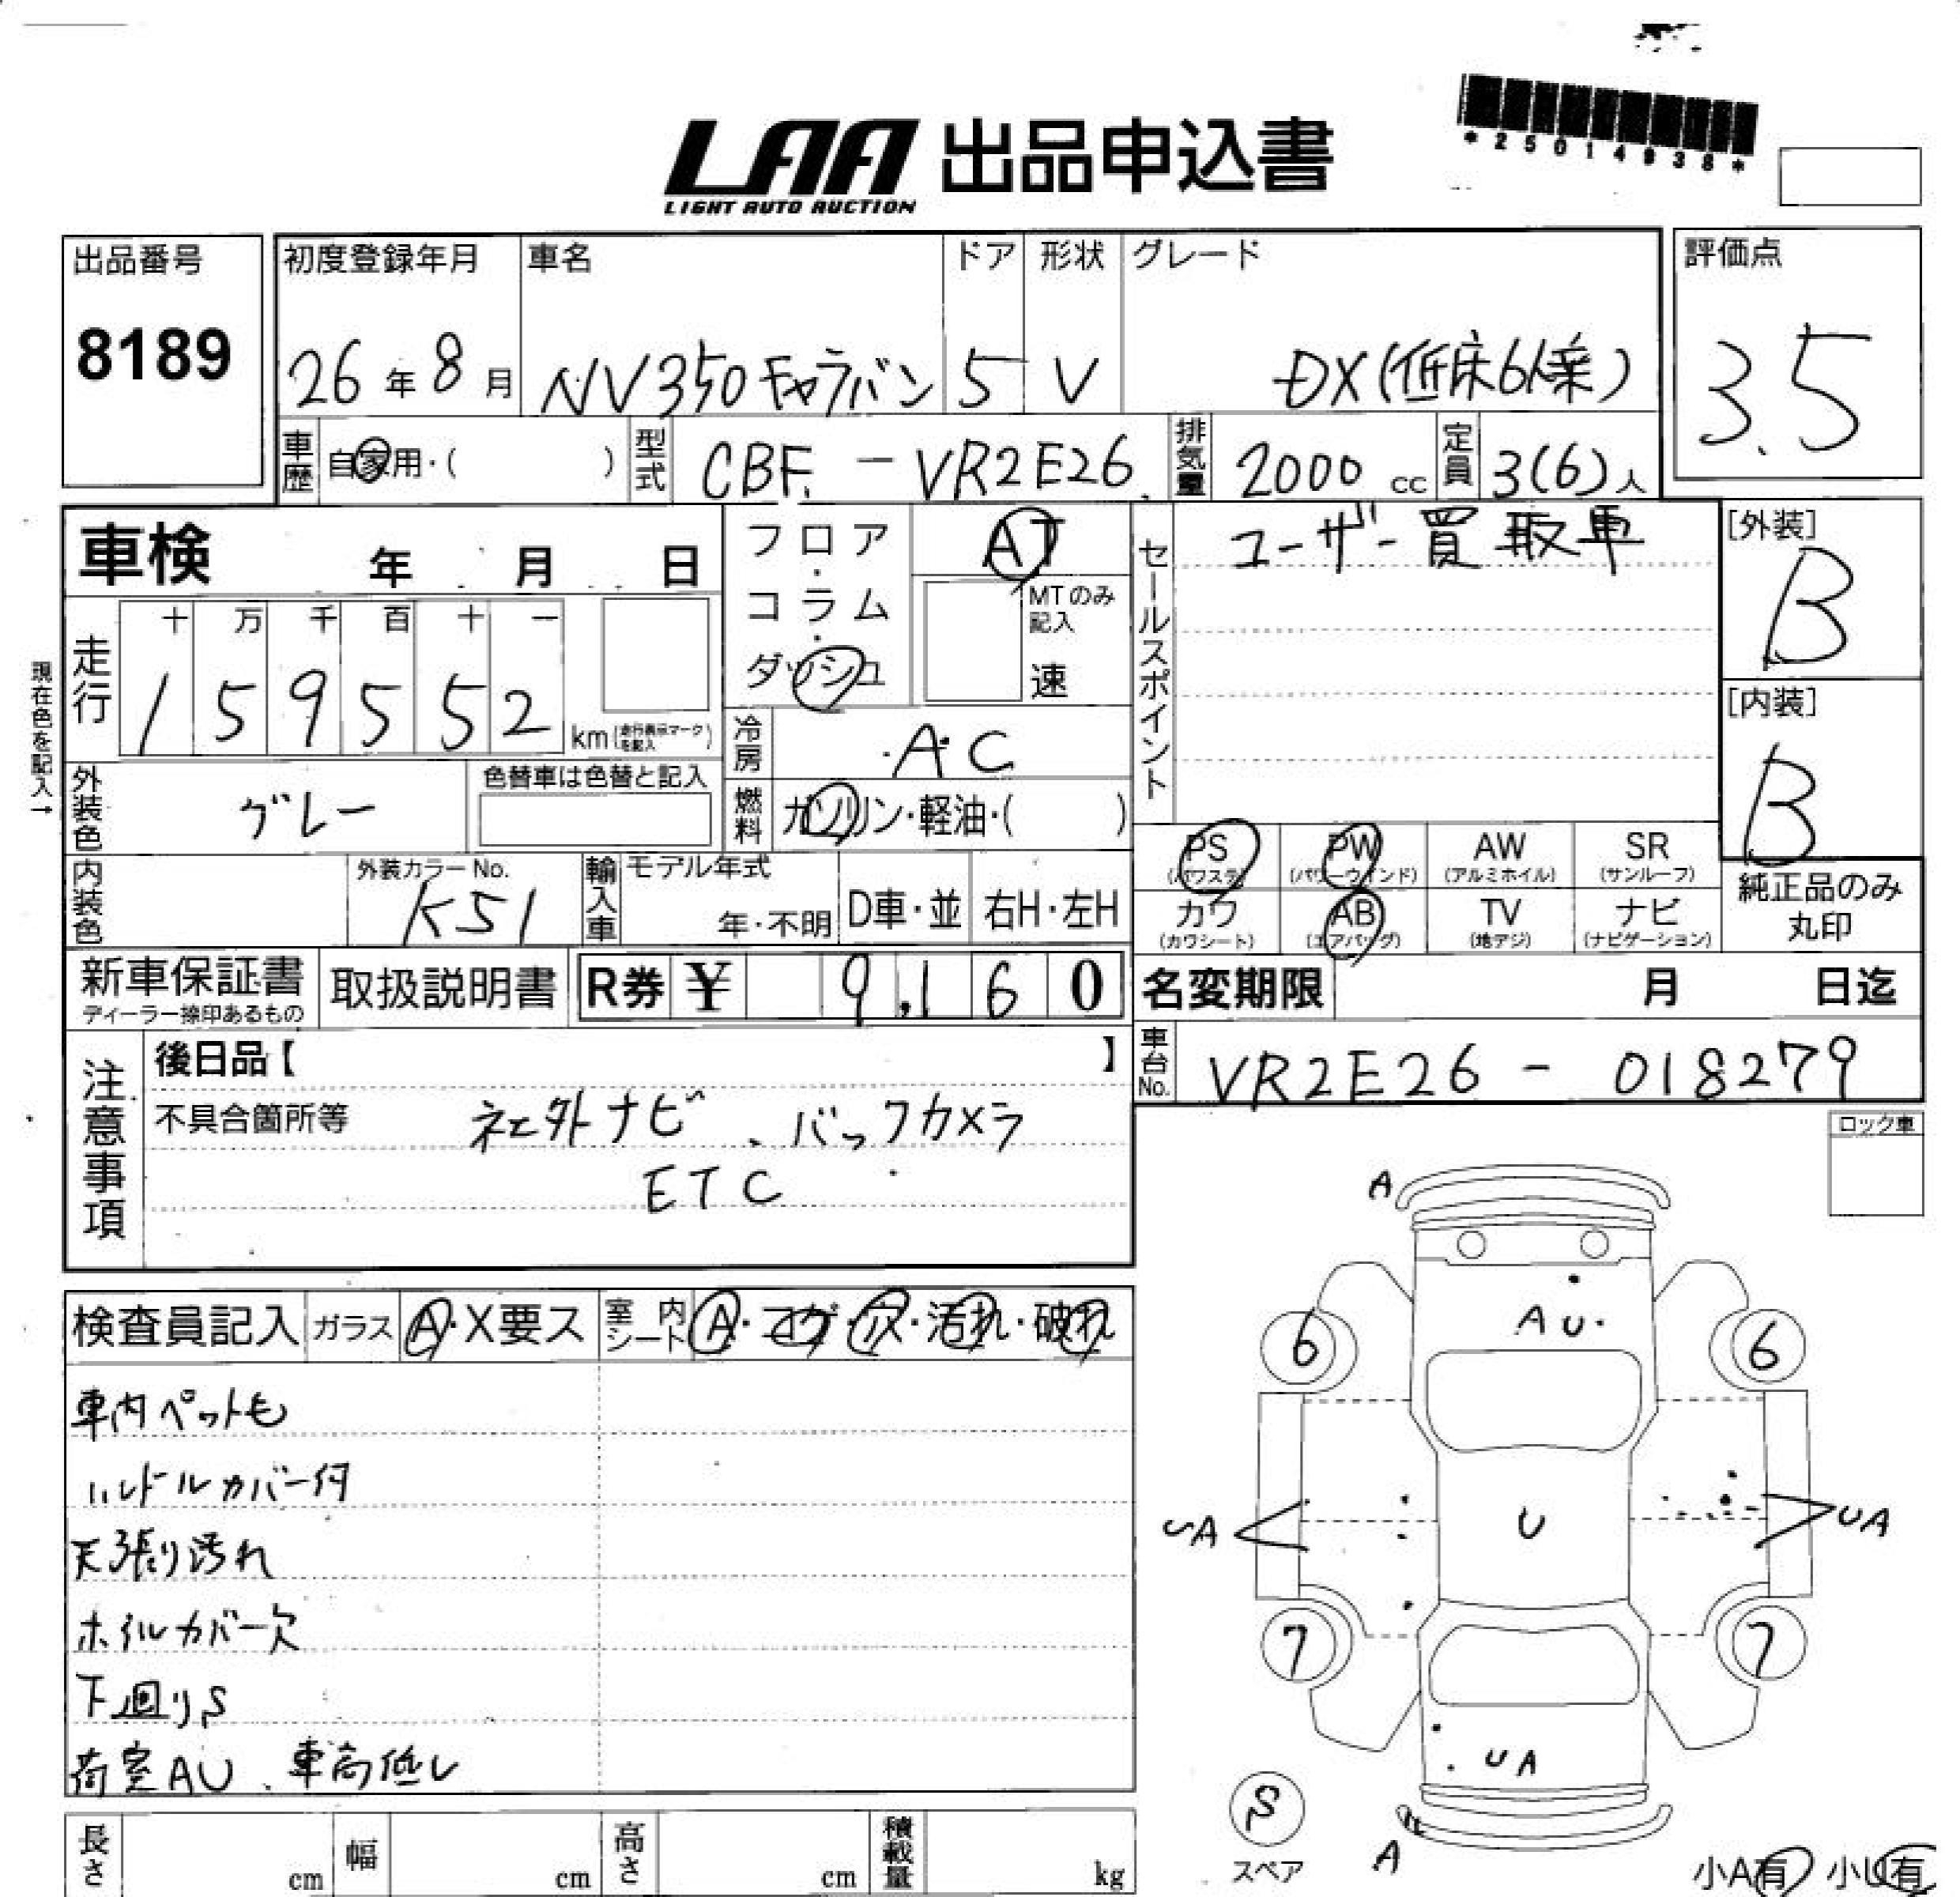 *25014938*
LAA 出品申込書
LIGHT AUTO AUCTION
出品番号 初度登録年月 車名 ドア 形状 グレード 評価点
8189 26年8月 NV350キャラバン 5 V DX(低床6人乗) 3.5
車歴 自家用・( ) 型式 CBF-VR2E26 排気量 2000cc 定員 3(6)人
車検 年 月 日
フロア・コラム・ダッシュ
AT
MTのみ記入
速
セールスポイント
ユーザー買取車
[外装]
B
[内装]
B
現在色を記入→
走行 十 万 千 百 十 一
1 5 9 5 5 2 km(走行表示マークを記入)
冷房 AC
外装色 グレー 色替車は色替と記入
燃料 ガソリン・軽油・( )
内装色 外装カラーNo. K51
輸入車 モデル年式 年・不明 D車・並 右H・左H
PS (パワステ) PW (パワーウインド) AW (アルミホイル) SR (サンルーフ)
カワ (カワシート) AB (エアバッグ) TV (地デジ) ナビ (ナビゲーション)
純正品のみ丸印
新車保証書 取扱説明書 R券 ¥ 9,160
ディーラー捺印あるもの
名変期限 月 日迄
車台No. VR2E26-018279
注意事項
後日品【 】
不具合箇所等 社外ナビ、バックカメラ
ETC
ロック車
検査員記入 ガラス A・X要ス 室内シート A・コゲ・穴・汚れ・破れ
車内ペットも
ハンドルカバー付
天張り汚れ
ホイルカバー欠
下回りS
荷室AU、車高低し
A
AU
6 6
UA U UA
7 7
UA
S
スペア
A
小A有 小U有
長さ cm 幅 cm 高さ cm 積載量 kg